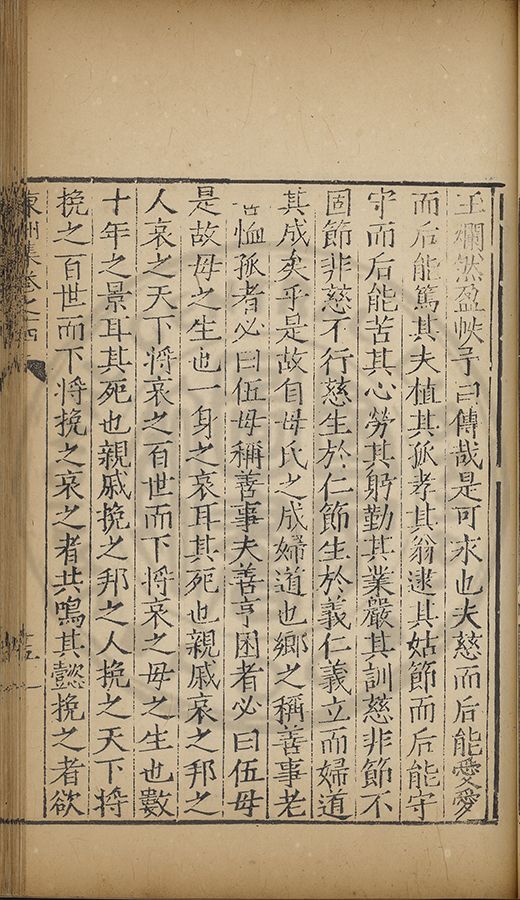 玉爛然盈帙予曰傳哉是可求也夫慈而后能愛愛
而后能篤其夫植其孤孝其翁逮其姑節而后能守
守而后能苦其心勞其躬勤其業嚴其訓慈非節不
固節非慈不行慈生於仁節生於義仁義立而婦道
其成矣乎是故自母氏之成婦道也鄉之稱善事老
恤孤者必曰伍母稱善事夫善亨困者必曰伍母
是故母之生也一身之哀耳其死也親戚哀之邦之
人哀之天下將哀之百世而下將哀之母之生也數
十年之景耳其死也親戚挽之邦之人挽之天下將
挽之百世而下將挽之哀之者共鳴其懿挽之者欲
東洲集卷之四
十五